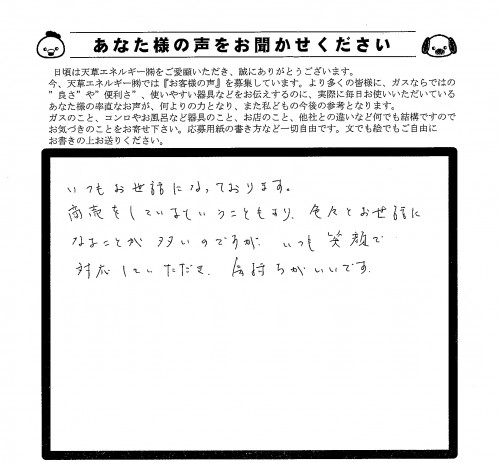 あなた様の声をお聞かせください
日頃は天草エネルギー㈱をご愛顧いただき、誠にありがとうございます。
今、天草エネルギー㈱では『お客様の声』を募集しています。より多くの皆様に、ガスならではの
”良さ”や”便利さ”、使いやすい器具などをお伝えするのに、実際に毎日お使いいただいている
あなた様の率直なお声が、何よりの力となり、また私どもの今後の参考となります。
ガスのこと、コンロやお風呂など器具のこと、お店のこと、他社との違いなど何でも結構ですので
お気づきのことをお寄せ下さい。応募用紙の書き方など一切自由です。文でも絵でもご自由に
お書きの上お送りください。
いつもお世話になっております。
商売をしているということもあり、色々とお世話に
なることが多いのですが、いつも笑顔で
対応していただき、気持ちがいいです。